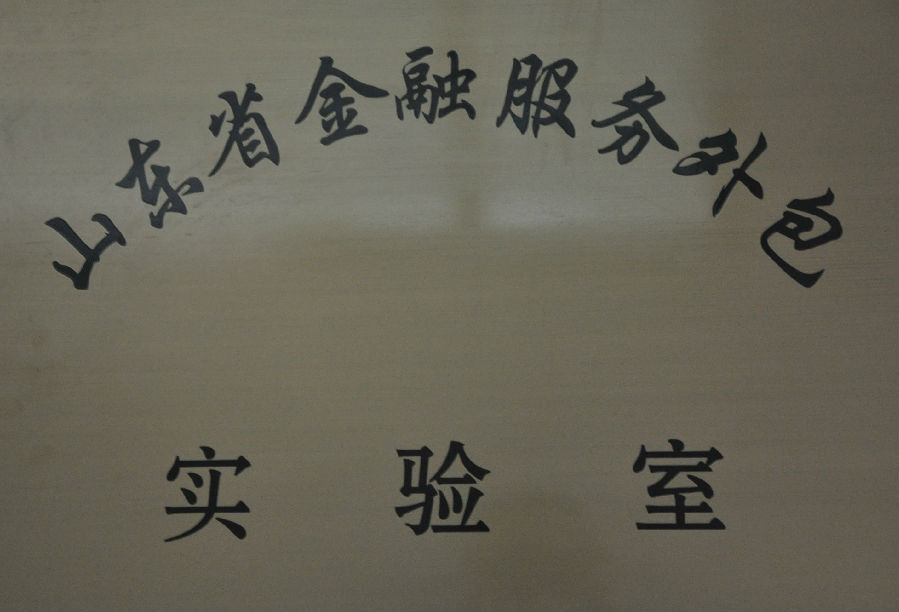 山东省金融服务外包
实验室